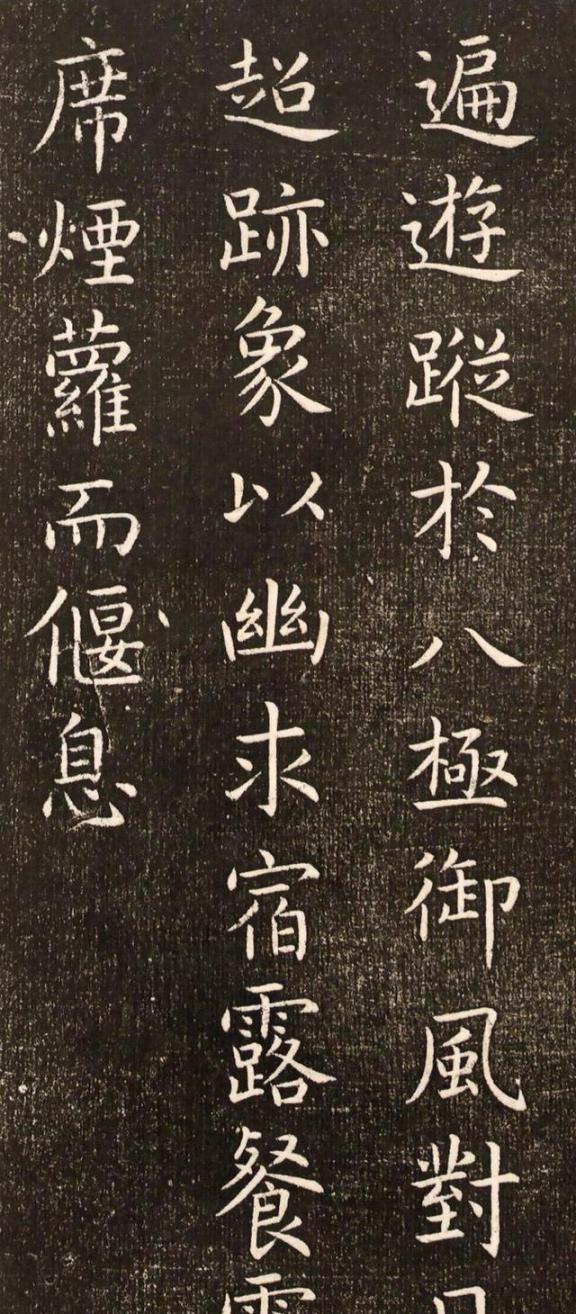 遍遊蹤於八極御風對
超跡象以幽求宿露餐
席煙蘿而偃息